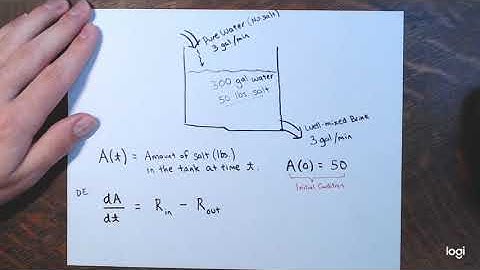 Pure Water (No Salt)
3 gal/min
300 gal water
50 lbs. salt
Well-mixed Brine
3 gal/min
A(t) = Amount of salt (lbs.)
in the tank at time t.
A(0) = 50
Initial Condition
DE
dA/dt = R_in - R_out
logi